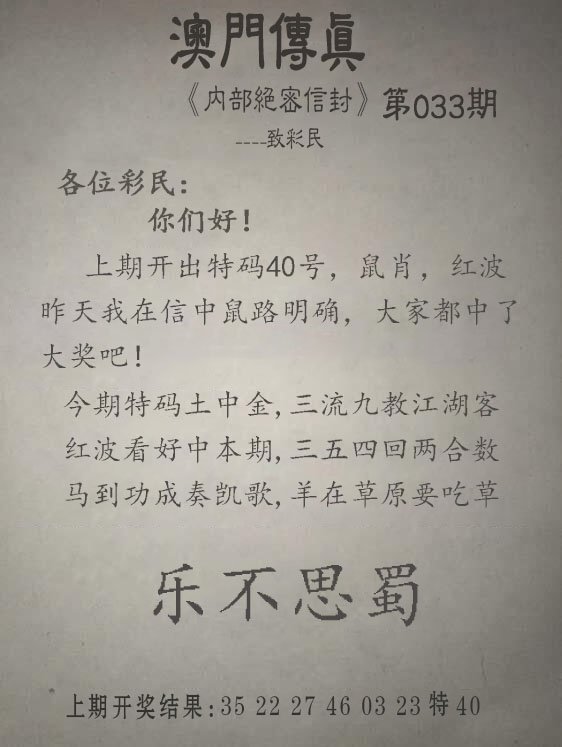 澳門傳眞
《内部絕密信封》第033期
----致彩民
各位彩民：
你们好！
上期开出特码40号，鼠肖，红波
昨天我在信中鼠路明确，大家都中了
大奖吧！
今期特码土中金,三流九教江湖客
红波看好中本期,三五四回两合数
马到功成奏凯歌,羊在草原要吃草
乐不思蜀
上期开奖结果:35 22 27 46 03 23特40